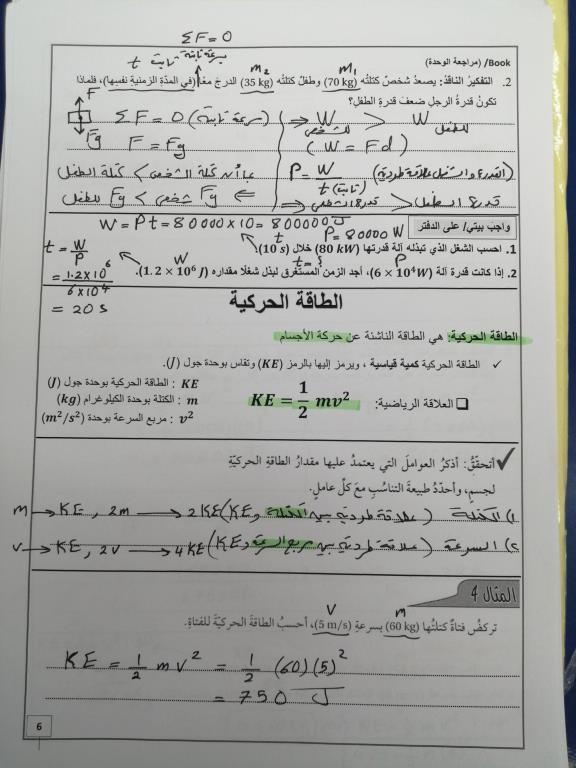 ΣF = 0
Book/ (مراجعة الوحدة)
سرعة ثابتة ثابت t
m₂ m₁
2. التفكير الناقد: يصعدُ شخصٌ كتلته (70 kg) وطفلٌ كتلتُه (35 kg) الدرجَ معًا (في المدّةِ الزمنيةِ نفسِها)، فلماذا
تكونُ قدرةُ الرجلِ ضعفَ قدرةِ الطفلِ؟
F
ΣF = 0 (سرعة ثابتة) ⇒ W للشخص > W للطفل
Fg F = Fg (W = Fd)
بما أن كتلة الشخص > كتلة الطفل P = W/t (ثابت) (القدرة والشغل علاقة طردية)
⇐ Fg شخص > Fg للطفل
W = Pt = 80000 × 10 = 800000 J
واجب بيتي/ على الدفتر
t P = 80000 W
1. احسب الشغل الذي تبذله آلة قدرتها (80 kW) خلال (10 s).
t = ؟ W P
2. إذا كانت قدرة آلة (6 × 10⁴W)، أجد الزمن المستغرق لبذل شغلًا مقداره (1.2 × 10⁶ J).
t = W/P
= 1.2×10⁶ / 6×10⁴
= 20 s
الطاقة الحركية
الطاقة الحركية: هي الطاقة الناشئة عن حركة الأجسام
✓ الطاقة الحركية كمية قياسية ، ويرمز إليها بالرمز (KE) وتقاس بوحدة جول (J).
❑ العلاقة الرياضية: KE = 1/2 mv²
KE : الطاقة الحركية بوحدة جول (J)
m : الكتلة بوحدة الكيلوغرام (kg)
v² : مربع السرعة بوحدة (m²/s²)
✓ أتحقّقُ: أذكرُ العواملَ التي يعتمدُ عليها مقدارُ الطاقةِ الحركيّةِ
لجسمٍ، وأحدّدُ طبيعةَ التناسُبِ معَ كلِّ عاملٍ.
1) الكتلة (علاقة طردية بين الكتلة و KE) m → KE , 2m → 2KE
2) السرعة (علاقة طردية بين مربع السرعة و KE) v → KE , 2v → 4KE
المثال 4
v m
تركضُ فتاةٌ كتلتُها (60 kg) بسرعةِ (5 m/s)، أحسبُ الطاقةَ الحركيةَ للفتاةِ.
KE = 1/2 m v² = 1/2 (60)(5)²
= 750 J
6